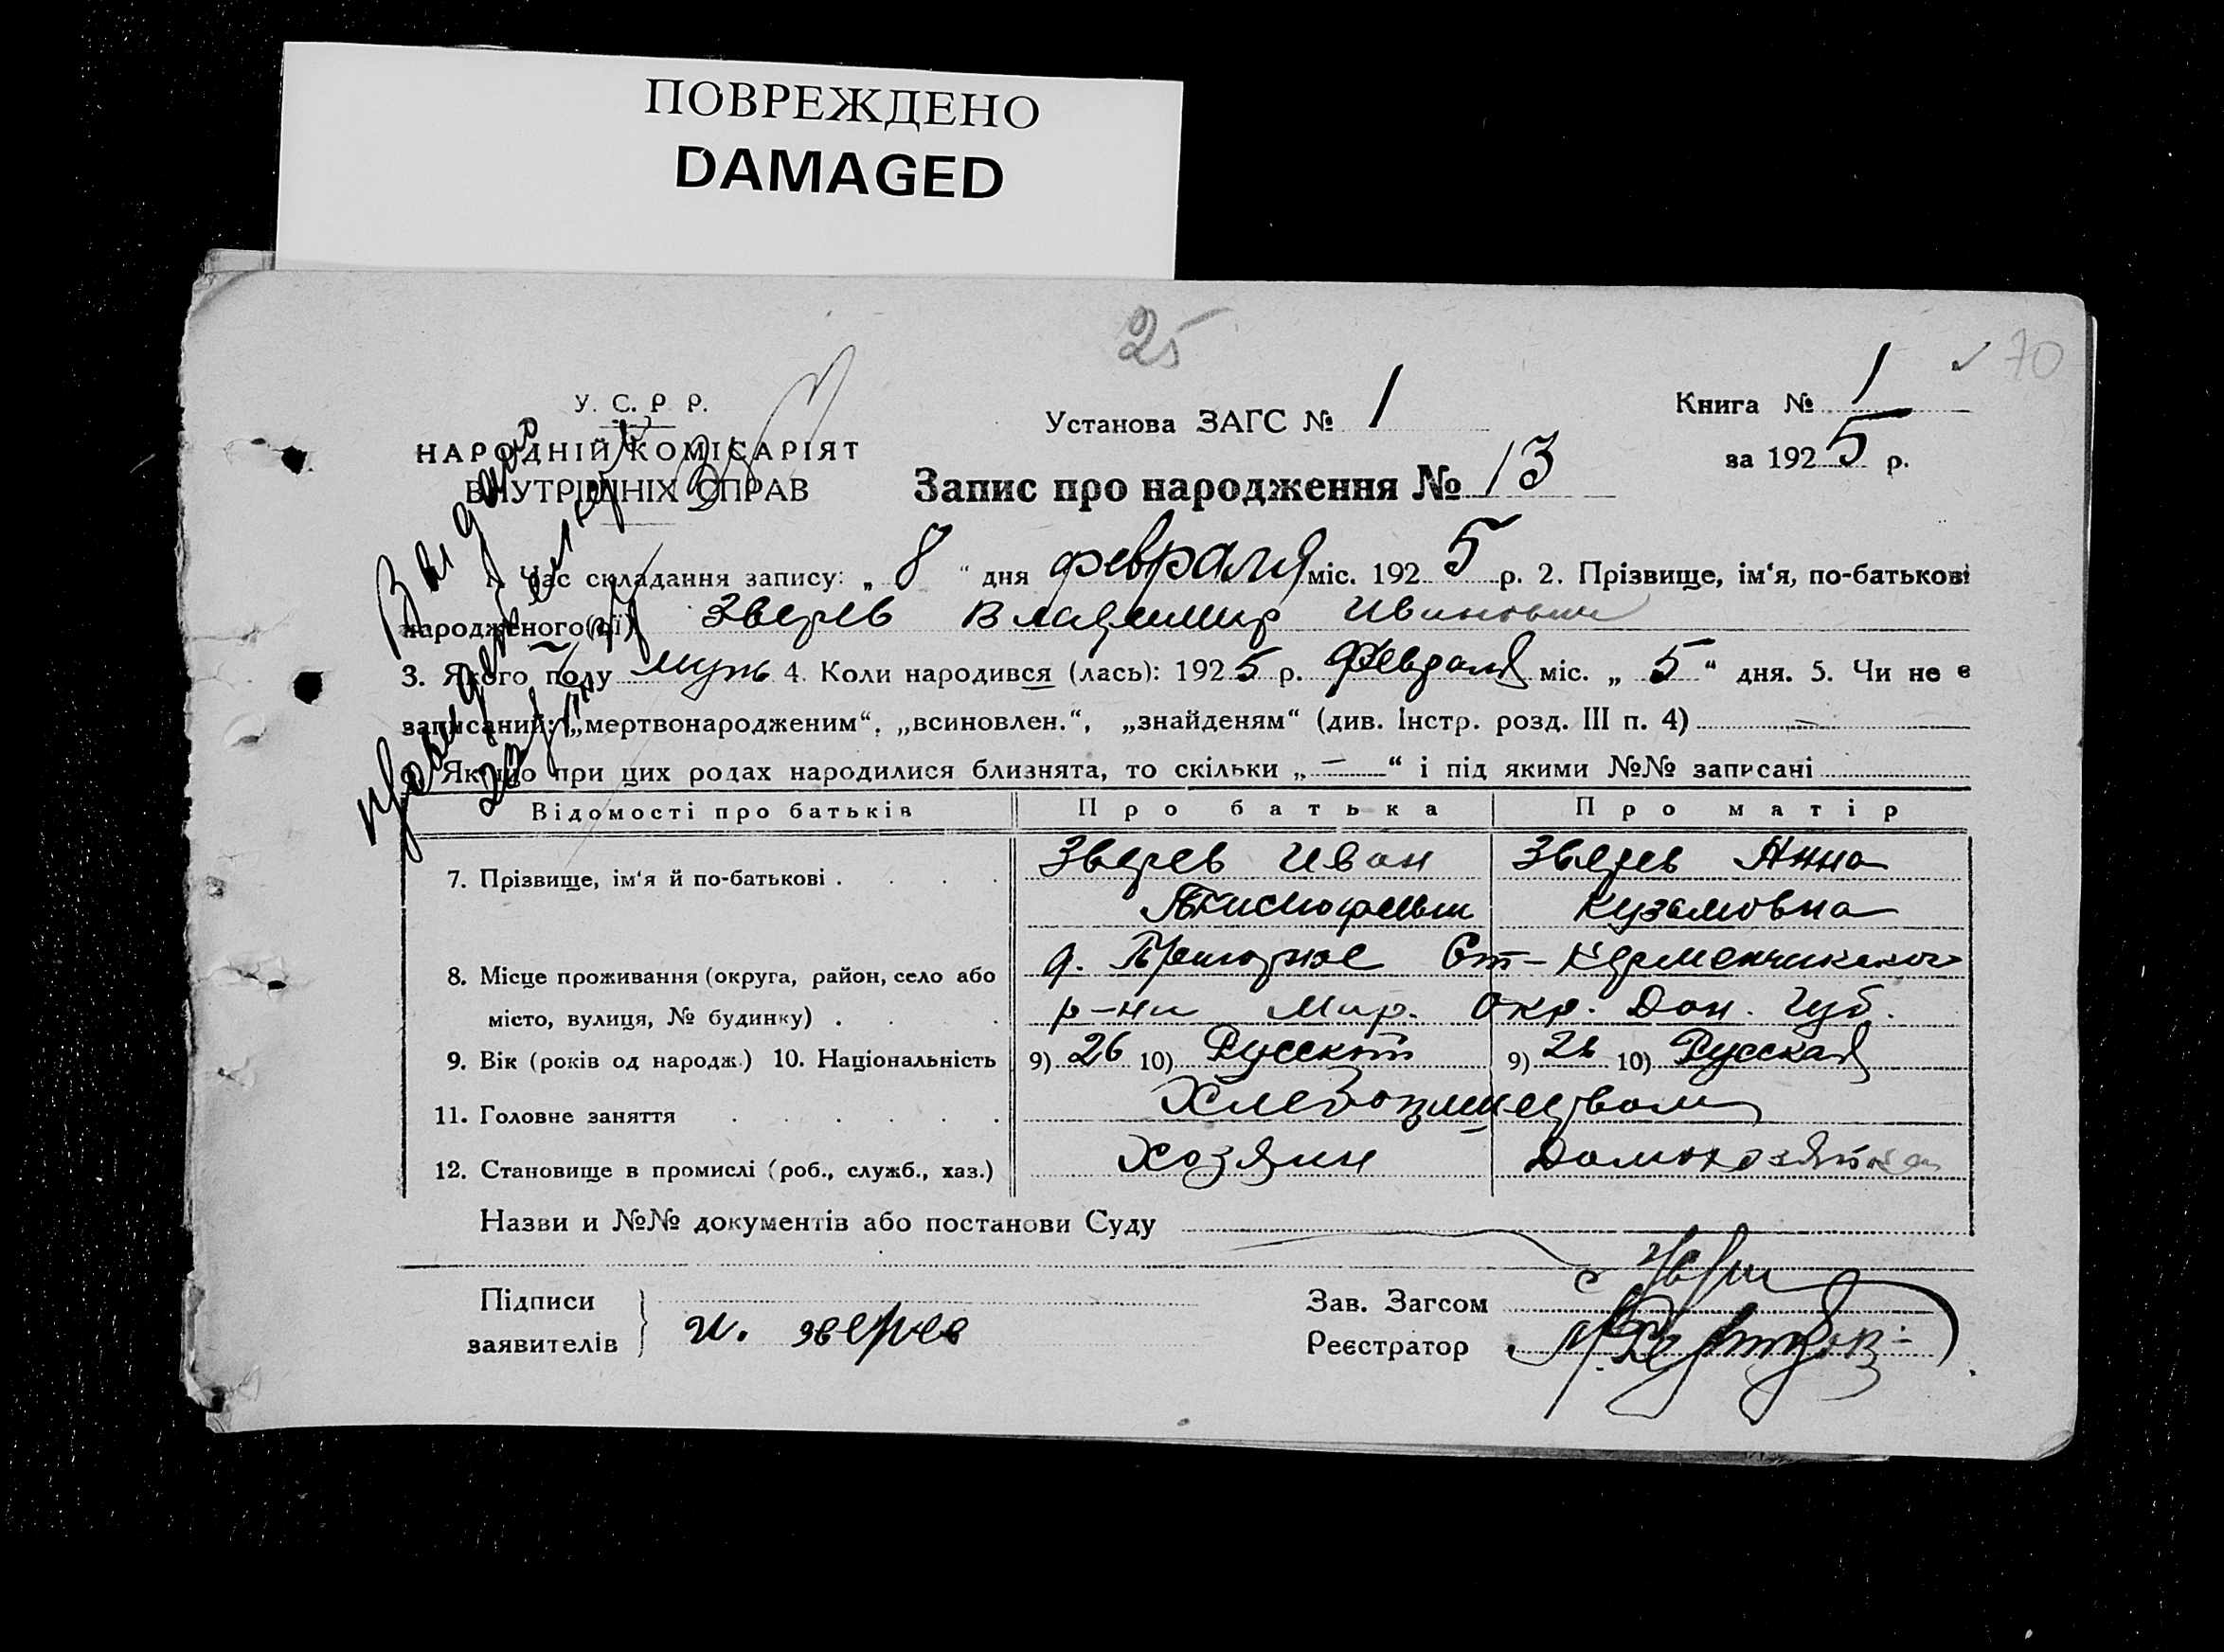 ПОВРЕЖДЕНО
DAMAGED
25
70
У. С. Р. Р.
НАРОДНІЙ КОМІСАРІЯТ
ВНУТРІШНІХ СПРАВ
Установа ЗАГС № 1
Книга № 1
за 1925 р.
Запис про народження № 13
Выдано
1. Час складання запису: „ 8 " дня февраля міс. 1925 р. 2. Прізвище, ім'я, по-батькові
народженого(ої) Зверев Владимир Иванович
3. Якого полу муж 4. Коли народився (лась): 1925 р. Февраля міс. „ 5 " дня. 5. Чи не є
записаний: „мертвонародженим", „всиновлен.", „знайденям" (див. Інстр. розд. III п. 4) —
6. Якщо при цих родах народилися близнята, то скільки „ — " і під якими №№ записані
Відомості про батьків Про батька Про матір
7. Прізвище, ім'я й по-батькові . . . . Зверев Иван Зверев Анна
Кузьмовна
8. Місце проживання (округа, район, село або
місто, вулиця, № будинку) . . . .
д. Ст-Керменчикского
р-на Мар. Окр. Дон. Губ.
9. Вік (років од народж.) 10. Національність 9) 26 10) Русский 9) 26 10) Русская
11. Головне заняття . . . . . . Хлебопашеством
12. Становище в промислі (роб., служб., хаз.) Хозяин Домохозяйка
Назви и №№ документів або постанови Суду
Підписи
заявителів
и. зверев
Зав. Загсом
Реєстратор